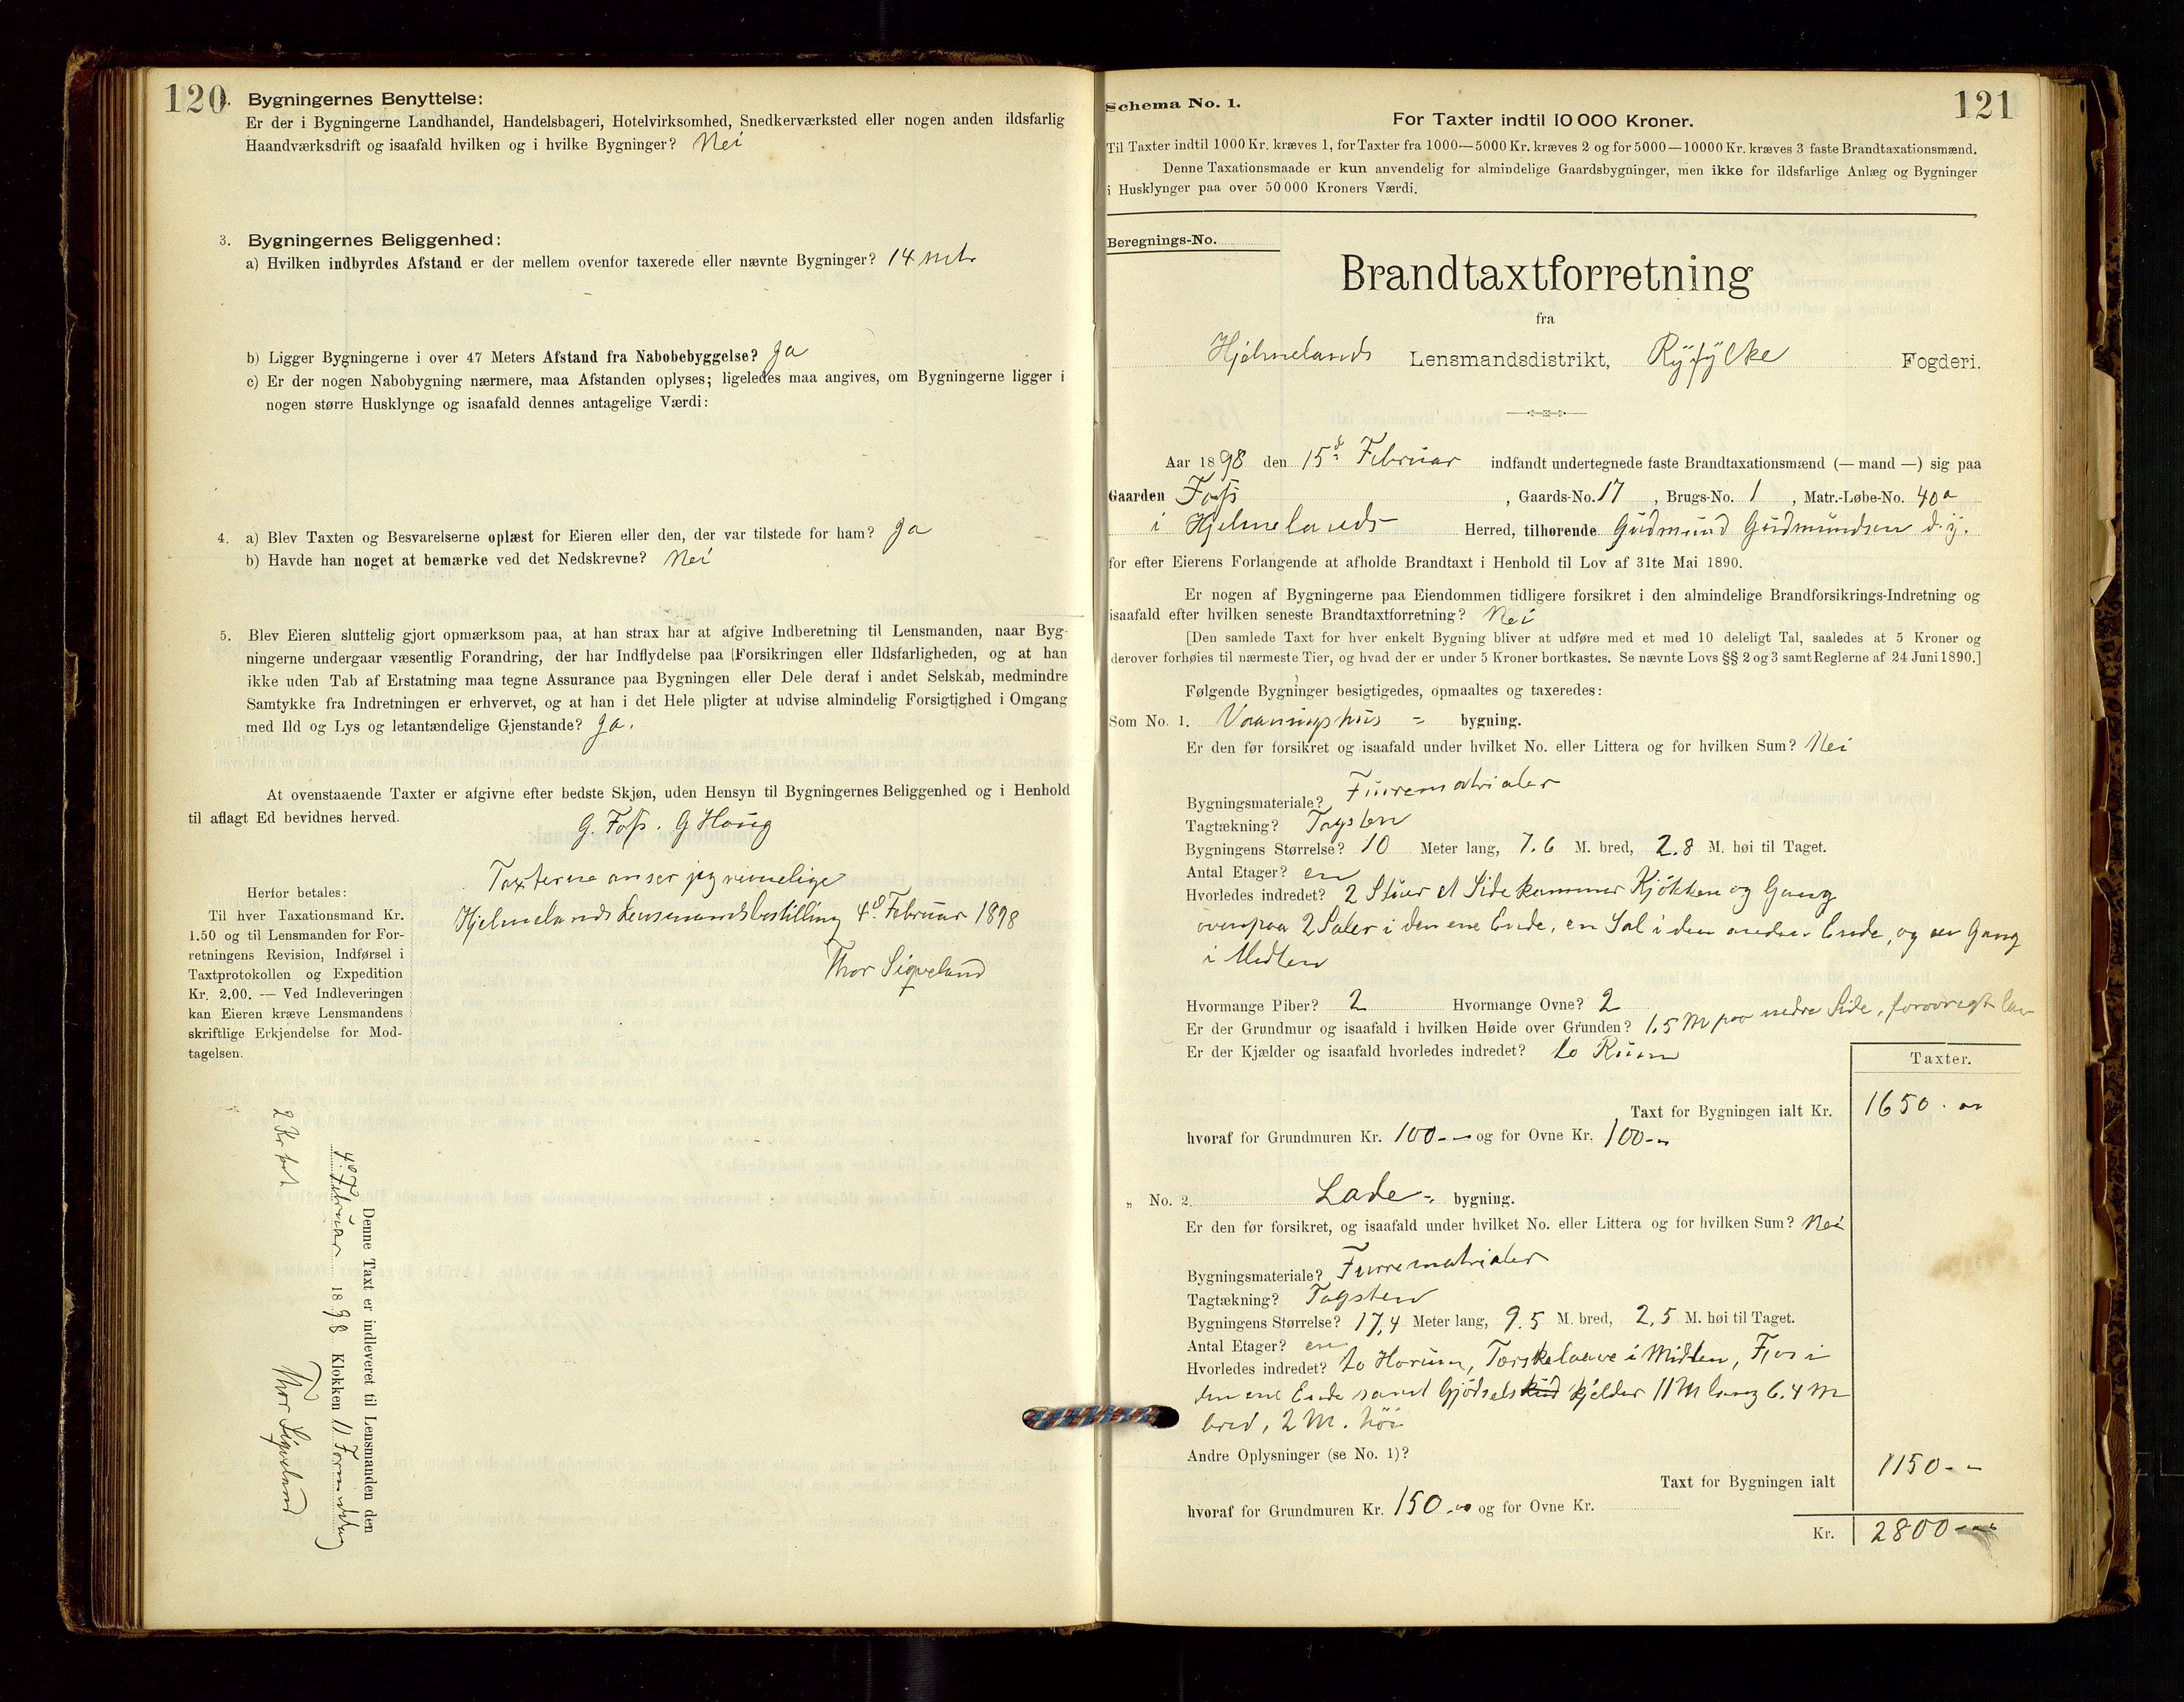 120
2. Bygningernes Benyttelse:
Er der i Bygningerne Landhandel, Handelsbageri, Hotelvirksomhed, Snedkerværksted eller nogen anden ildsfarlig
Haandværksdrift og isaafald hvilken og i hvilke Bygninger? Nei
3. Bygningernes Beliggenhed:
a) Hvilken indbyrdes Afstand er der mellem ovenfor taxerede eller nævnte Bygninger? 14 mtr
b) Ligger Bygningerne i over 47 Meters Afstand fra Nabobebyggelse? Ja
c) Er der nogen Nabobygning nærmere, maa Afstanden oplyses; ligeledes maa angives, om Bygningerne ligger i
nogen større Husklynge og isaafald dennes antagelige Værdi:
4. a) Blev Taxten og Besvarelserne oplæst for Eieren eller den, der var tilstede for ham? Ja
b) Havde han noget at bemærke ved det Nedskrevne? Nei
5. Blev Eieren sluttelig gjort opmærksom paa, at han strax har at afgive Indberetning til Lensmanden, naar Byg-
ningerne undergaar væsentlig Forandring, der har Indflydelse paa Forsikringen eller Ildsfarligheden, og at han
ikke uden Tab af Erstatning maa tegne Assurance paa Bygningen eller Dele deraf i andet Selskab, medmindre
Samtykke fra Indretningen er erhvervet, og at han i det Hele pligter at udvise almindelig Forsigtighed i Omgang
med Ild og Lys og letantændelige Gjenstande? Ja.
At ovenstaaende Taxter er afgivne efter bedste Skjøn, uden Hensyn til Bygningernes Beliggenhed og i Henhold
til aflagt Ed bevidnes herved.
G. Foss. G Haug
Taxterne anser jeg rimelige
Hjelmelands Lensmandsbestilling 4d Februar 1898
Thor Sigveland
Herfor betales:
Til hver Taxationsmand Kr.
1.50 og til Lensmanden for For-
retningens Revision, Indførsel i
Taxtprotokollen og Expedition
Kr. 2.00. — Ved Indleveringen
kan Eieren kræve Lensmandens
skriftlige Erkjendelse for Mod-
tagelsen.
2 Kr bet
Denne Taxt er indleveret til Lensmanden den
4d Februar 1898 Klokken 11 Formiddag
Thor Sigveland
121
Schema No. 1.
For Taxter indtil 10 000 Kroner.
Til Taxter indtil 1000 Kr. kræves 1, for Taxter fra 1000—5000 Kr. kræves 2 og for 5000—10000 Kr. kræves 3 faste Brandtaxationsmænd.
Denne Taxationsmaade er kun anvendelig for almindelige Gaardsbygninger, men ikke for ildsfarlige Anlæg og Bygninger
i Husklynger paa over 50 000 Kroners Værdi.
Beregnings-No.
Brandtaxtforretning
fra
Hjelmelands Lensmandsdistrikt, Ryfylke Fogderi.
Aar 1898 den 15d Februar indfandt undertegnede faste Brandtaxationsmænd (— mand —) sig paa
Gaarden Foss, Gaards-No. 17, Brugs-No. 1, Matr.-Løbe-No. 40a
i Hjelmelands Herred, tilhørende Gudmund Gudmundsen d.y.
for efter Eierens Forlangende at afholde Brandtaxt i Henhold til Lov af 31te Mai 1890.
Er nogen af Bygningerne paa Eiendommen tidligere forsikret i den almindelige Brandforsikrings-Indretning og
isaafald efter hvilken seneste Brandtaxtforretning? Nei
[Den samlede Taxt for hver enkelt Bygning bliver at udføre med et med 10 deleligt Tal, saaledes at 5 Kroner og
derover forhøies til nærmeste Tier, og hvad der er under 5 Kroner bortkastes. Se nævnte Lovs §§ 2 og 3 samt Reglerne af 24 Juni 1890.]
Følgende Bygninger besigtigedes, opmaaltes og taxeredes:
Som No. 1. Vaaningshus - bygning.
Er den før forsikret og isaafald under hvilket No. eller Littera og for hvilken Sum? Nei
Bygningsmateriale? Furrematrialer
Tagtækning? Tagsten
Bygningens Størrelse? 10 Meter lang, 7.6 M. bred, 2.8 M. høi til Taget.
Antal Etager? en
Hvorledes indredet? 2 Stuer et Sidekammer Kjøkken og Gang
ovenpaa 2 Saler i den ene Ende, en Sal i den anden Ende, og en Gang
i Midten
Hvormange Piber? 2 Hvormange Ovne? 2
Er der Grundmur og isaafald i hvilken Høide over Grunden? 1.5 M paa nedre Side, forøvrigt lav
Er der Kjælder og isaafald hvorledes indredet? to Rum
Taxter.
Taxt for Bygningen ialt Kr. 1650.
hvoraf for Grundmuren Kr. 100 - og for Ovne Kr. 100 -
" No. 2. Lade - bygning.
Er den før forsikret, og isaafald under hvilket No. eller Littera og for hvilken Sum? Nei
Bygningsmateriale? Furrematrialer
Tagtækning? Tagsten
Bygningens Størrelse? 17,4 Meter lang, 9.5 M. bred, 2,5 M. høi til Taget.
Antal Etager? en
Hvorledes indredet? to Horum, Tærskelaave i Midten, Fjøs i
den ene Ende samt Gjødselskjelder 11 M lang 6.4 M
bred, 2 M. høi
Andre Oplysninger (se No. 1)?
Taxt for Bygningen ialt 1150 - -
hvoraf for Grundmuren Kr. 150 - og for Ovne Kr.
Kr. 2800 -